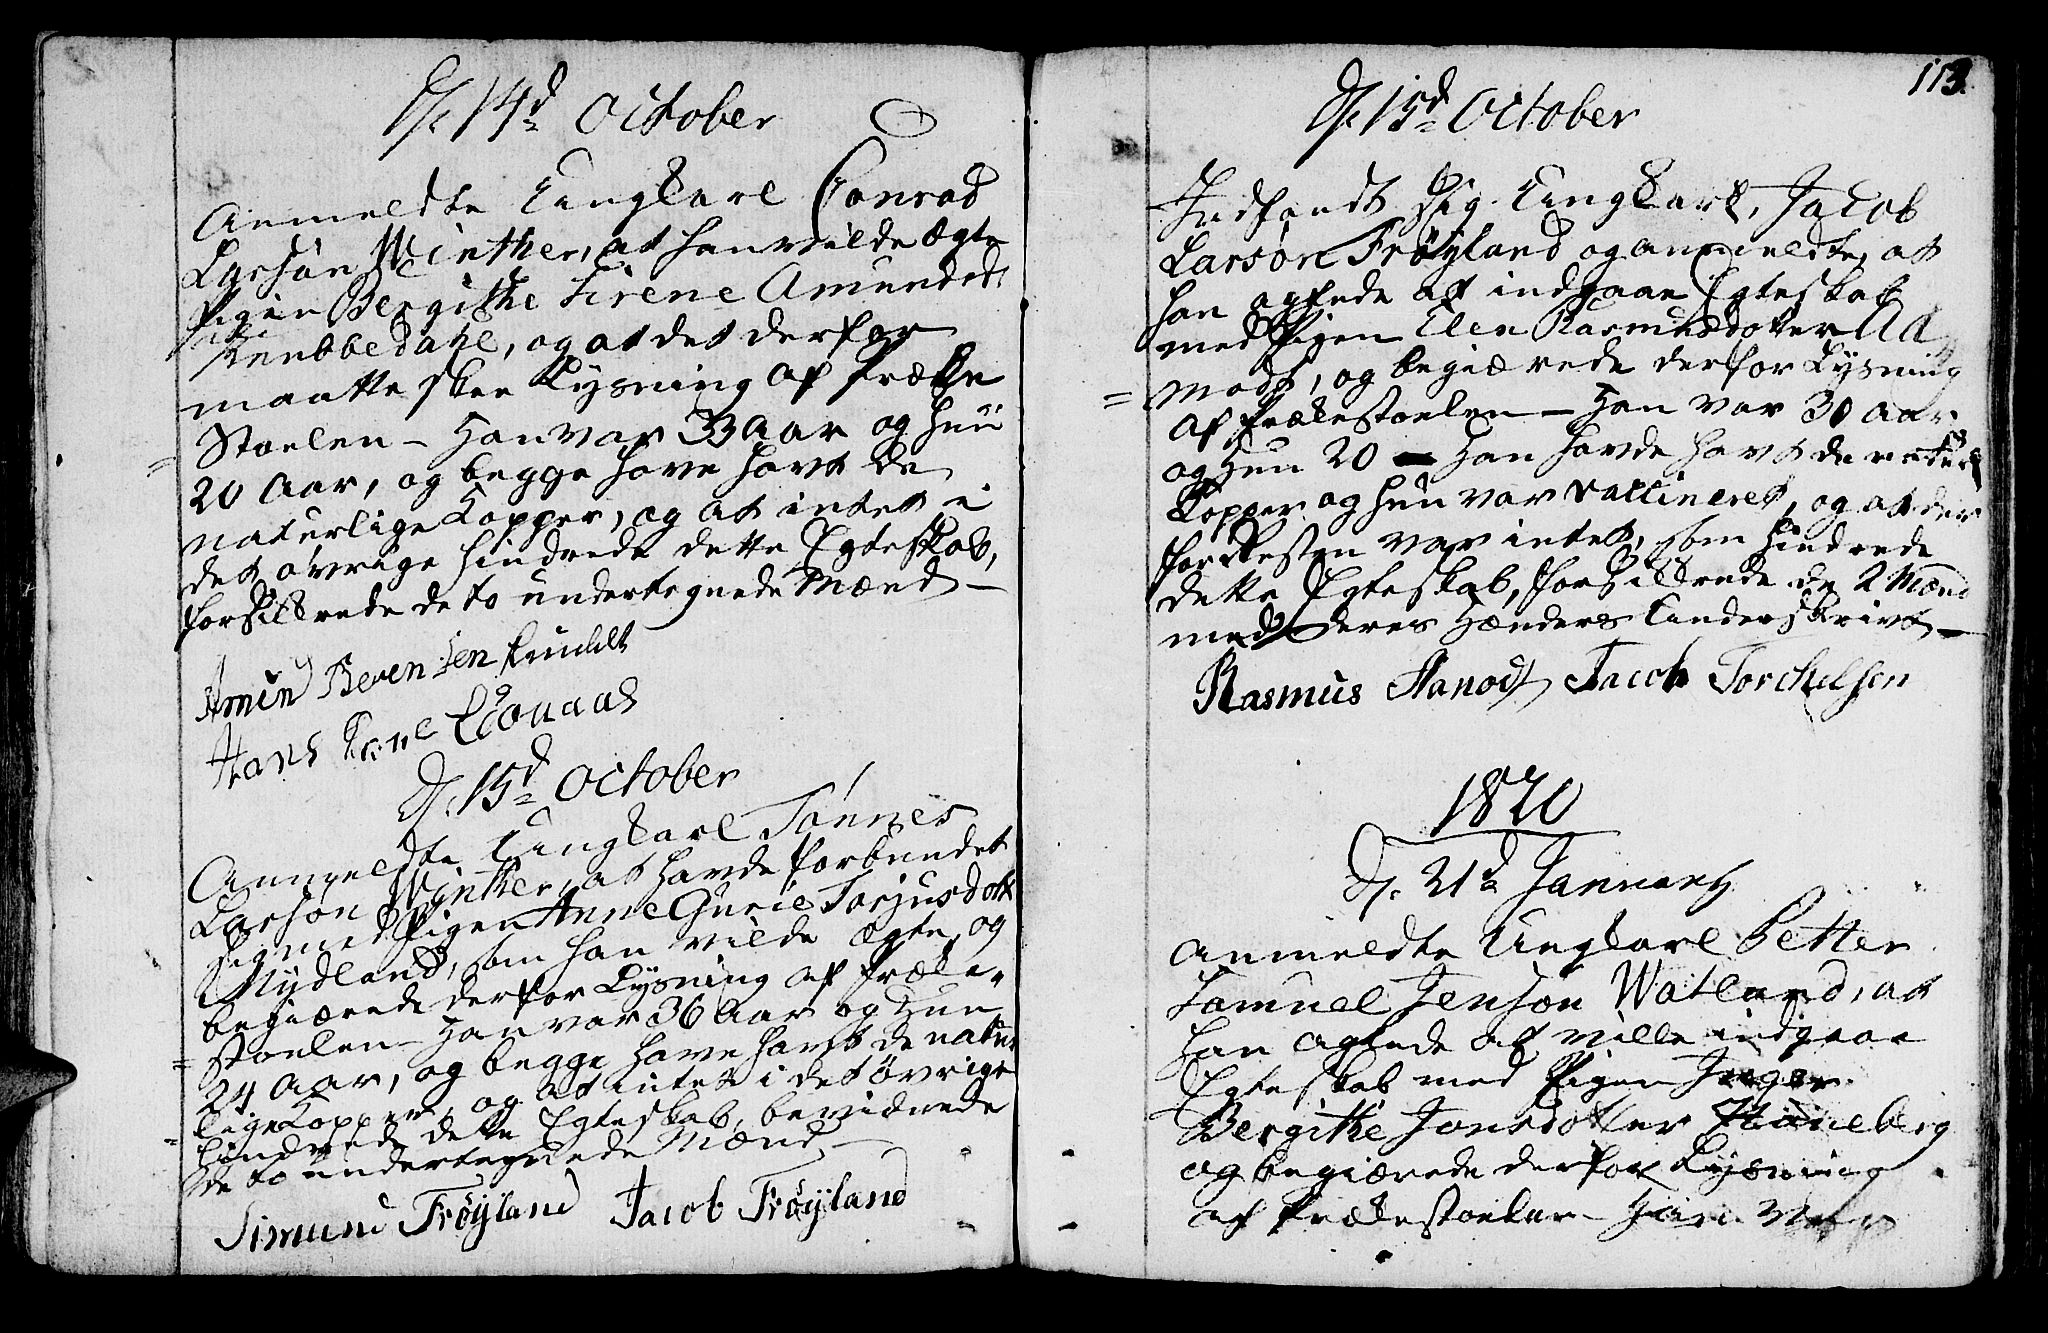 D. 14d October
Anmeldte Ungkarl Conrad
Larsøn Winther, at han vilde ægte
Pigen Bergithe Sirene Amundsdt
Knubbedahl, og at det derfor
maatte skee Lysning af Præke
Stoelen – Han var 33 Aar og hun
20 Aar, og begge have havt de
naturlige Kopper, og at intet i
det øvrige hindrede dette Egteskab,
forsikkrede de to undertegnede Mænd –
Amund Berentsen
Hans
D. 15d October
Anmeldte Ungkarl Tønnes
Larsøn Winther, at havde forbundet
sig med Pigen Anne Gurie Torjusdott
Nydland, som han vilde ægte, og
begiærede derfor Lysning af Præke-
stoelen – Han var 36 Aar og Hun
24 Aar, og begge have havt de natur
lige Kopper, og at intet i det øvrige
hindrede dette Egteskab, bevidnede
de to undertegnede Mænd –
Simund Frøyland Jacob Frøyland
113.
D. 15d October
Indfandt sig Ungkarl, Jacob
Larsøn Frøyland og anmeldte, at
han agtede at indgaae Egteskab
med Pigen Elen Rasmusdotter Aa
modt, og begiærede derfor Lysning
af Prækestoelen – Han var 30 Aar
og Hun 20 – Han havde havt de naturl
Kopper og hun var vaccineret, og at der
forresten var intet, som hindrede
dette Egteskab, forsikkrede de 2 Mænd
med deres Hænders Underskrivt –
Rasmus Aamodt Jacob Torchelsen
1820
D. 21d January
Anmeldte Ungkarl Petter
Samuel Jensøn Watland, at
han agtede at ville indgaae
Egteskab med Pigen Inger
Bergithe Jonsdotter Haneberg
og begiærede derfor Lysning
af Prækestoelen – Han var